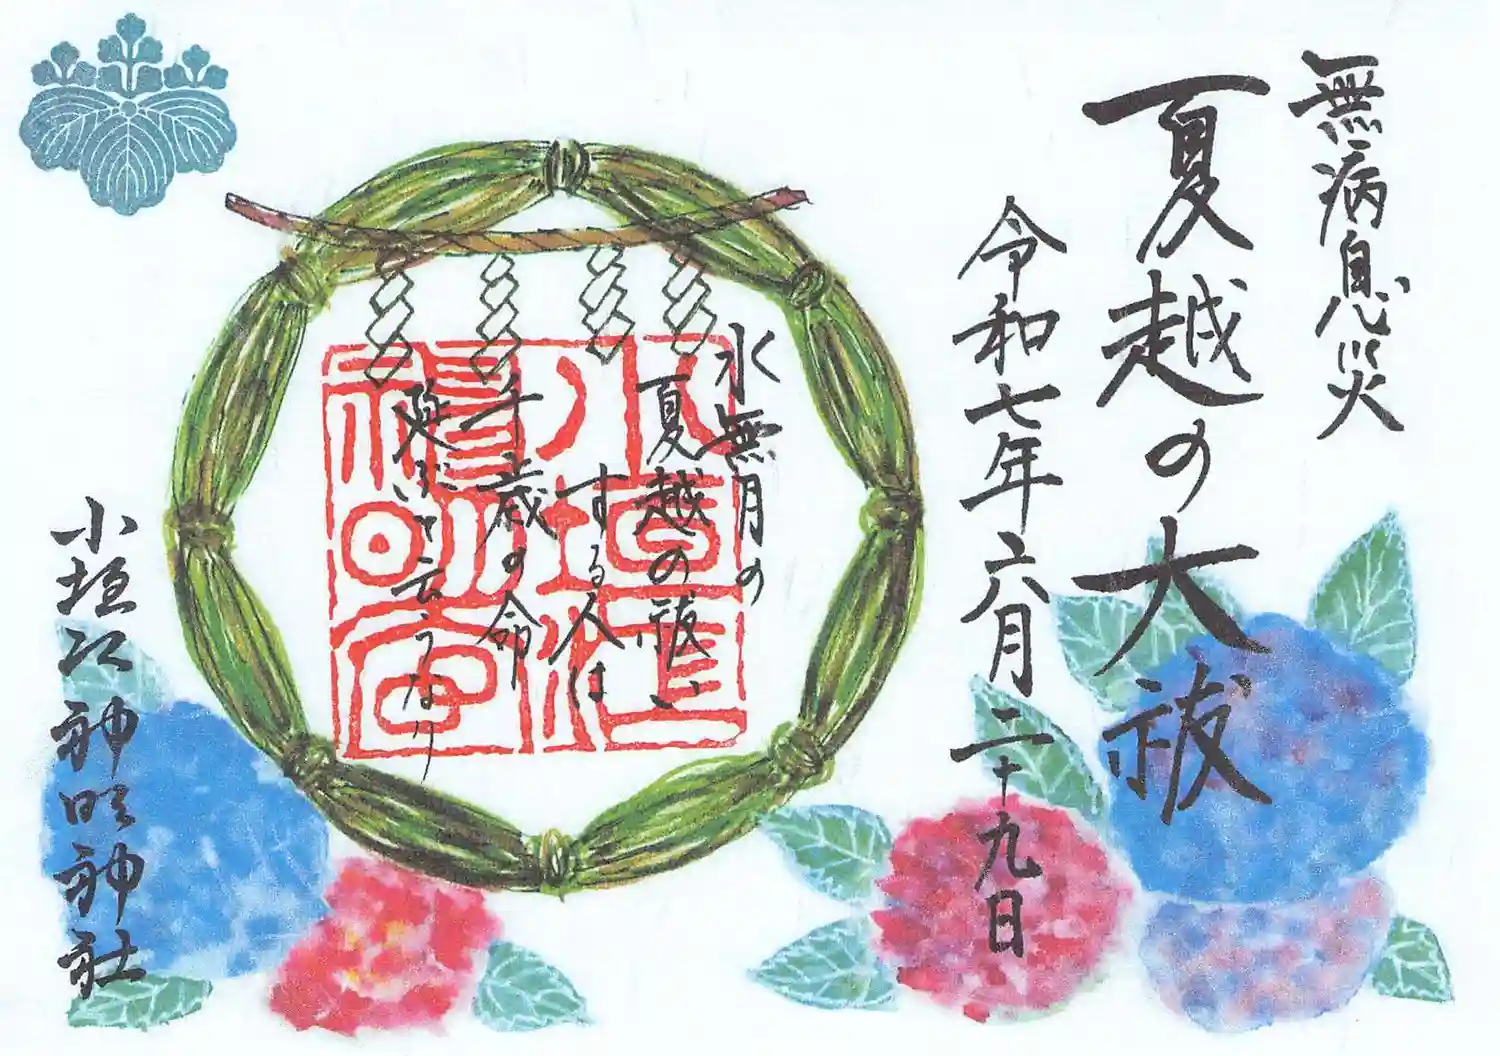 無病息災
夏越の大祓
令和七年六月二十九日
水無月の
夏越の祓い
する人は
千歳の命
延ぶと云うなり
小垣江神明神社
小垣江
神明宮